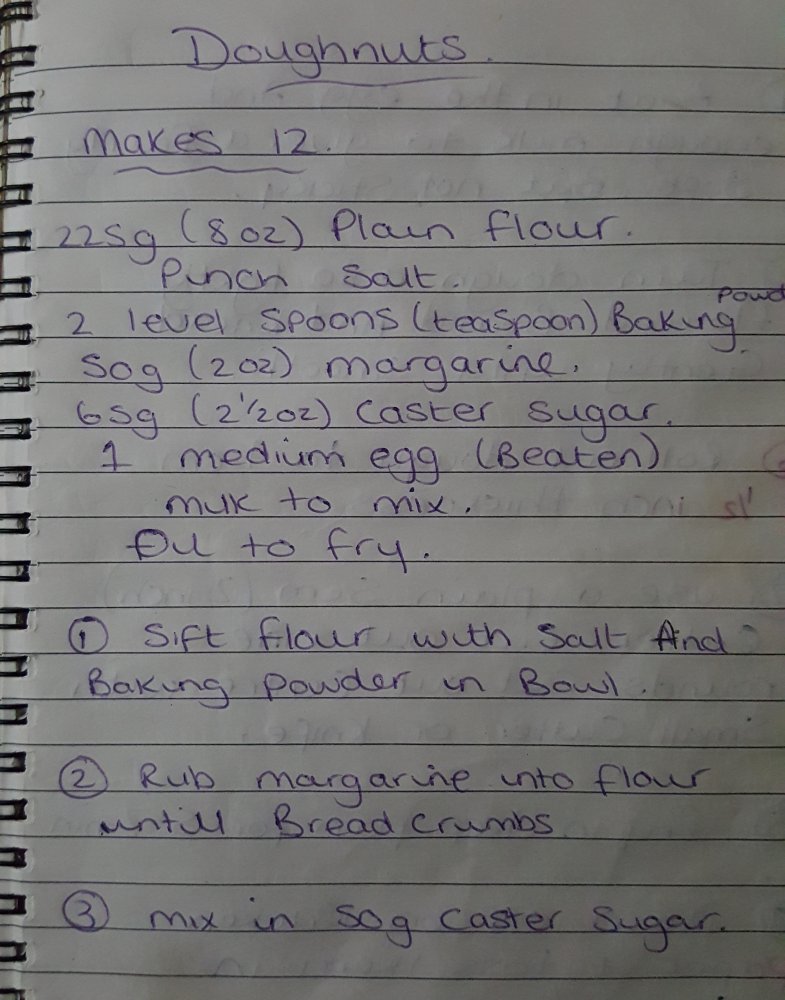 Doughnuts.
Makes 12.
225g (8oz) Plain flour.
Pinch Salt.
2 level spoons (teaspoon) Baking powd
50g (2oz) margarine.
65g (2½oz) Caster Sugar.
1 medium egg (Beaten)
milk to mix.
Oil to fry.
① Sift flour with Salt And
Baking Powder in Bowl.
② Rub margarine into flour
untill Bread crumbs
③ mix in 50g Caster Sugar.